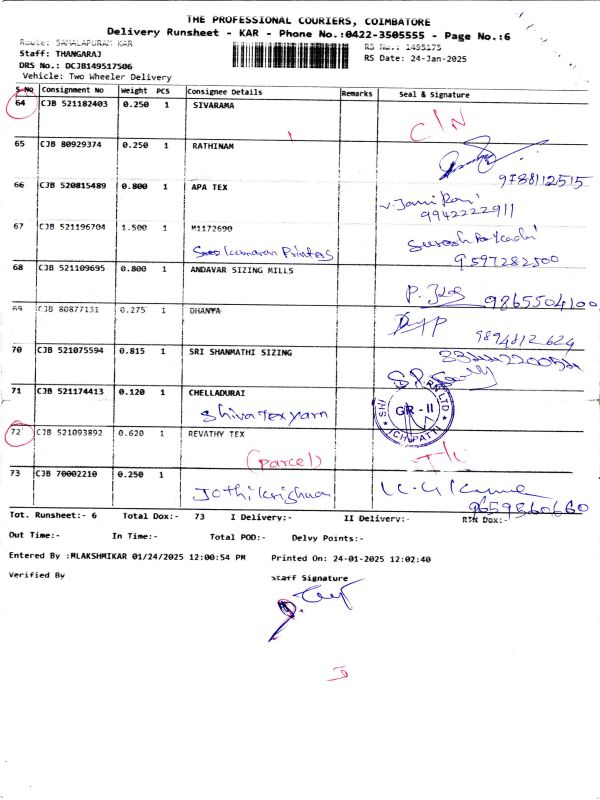 THE PROFESSIONAL COURIERS, COIMBATORE
Delivery Runsheet - KAR - Phone No.:0422-3505555 - Page No.:6
Route: SAMALAPURAM KAR
RS No.: 1495175
Staff: THANGARAJ
RS Date: 24-Jan-2025
DRS No.: DCJB149517506
Vehicle: Two Wheeler Delivery
S No Consignment No Weight PCS Consignee Details Remarks Seal & Signature
64 CJB 521182403 0.250 1 SIVARAMA C/N
65 CJB 80929374 0.250 1 RATHINAM
9788112515
66 CJB 520815489 0.800 1 APA TEX V. Jami Rani
9942222911
67 CJB 521196704 1.500 1 M1172690
Kumaran Printers Suresh
9597282500
68 CJB 521109695 0.800 1 ANDAVAR SIZING MILLS
9865504100
69 CJB 80877131 0.275 1 DHANYA
9894812624
70 CJB 521075594 0.815 1 SRI SHANMATHI SIZING
71 CJB 521174413 0.120 1 CHELLADURAI
Shiva Tex yarn GR - II
72 CJB 521093892 0.620 1 REVATHY TEX
(parcel)
73 CJB 70002210 0.250 1
Jothi Krishnan
9659560660
Tot. Runsheet:- 6 Total Dox:- 73 I Delivery:- II Delivery:- RTN Dox:-
Out Time:- In Time:- Total POD:- Delvy Points:-
Entered By :MLAKSHMIKAR 01/24/2025 12:00:54 PM Printed On: 24-01-2025 12:02:40
Verified By Staff Signature